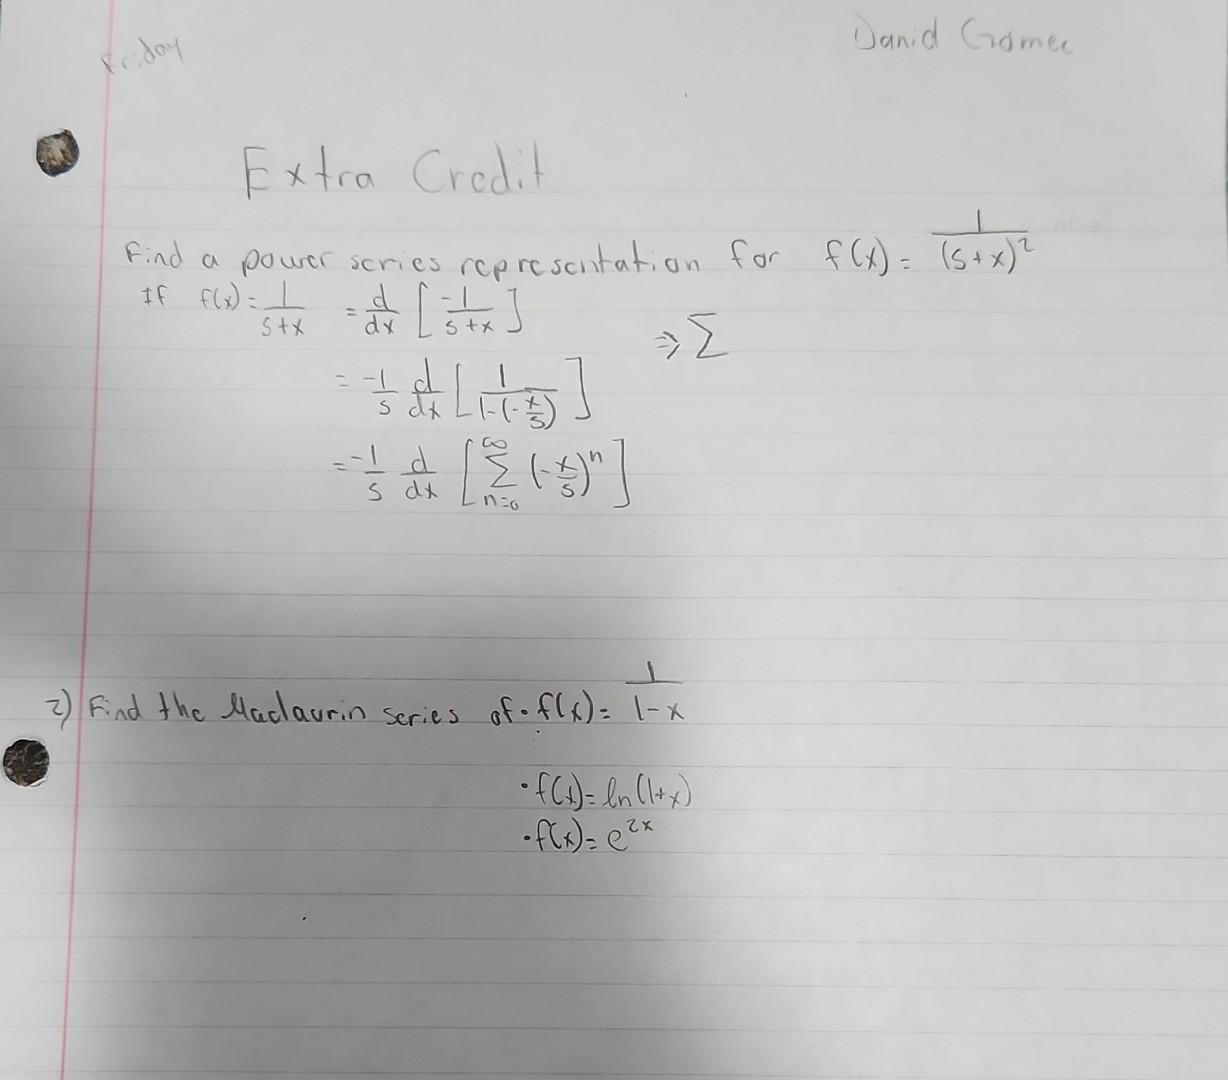 Friday
Danid Gomec
Extra Credit
Find a power series representation for f(x) = 1/(5+x)²
If f(x) = 1/(5+x) = d/dx [-1/(5+x)]
⇒ Σ
= -1/5 d/dx [1/(1-(-x/5))]
= -1/5 d/dx [∞ Σ n=0 (-x/5)ⁿ]
2) Find the Maclaurin series of • f(x) = 1/(1-x)
• f(x) = ln(1+x)
• f(x) = e²ˣ